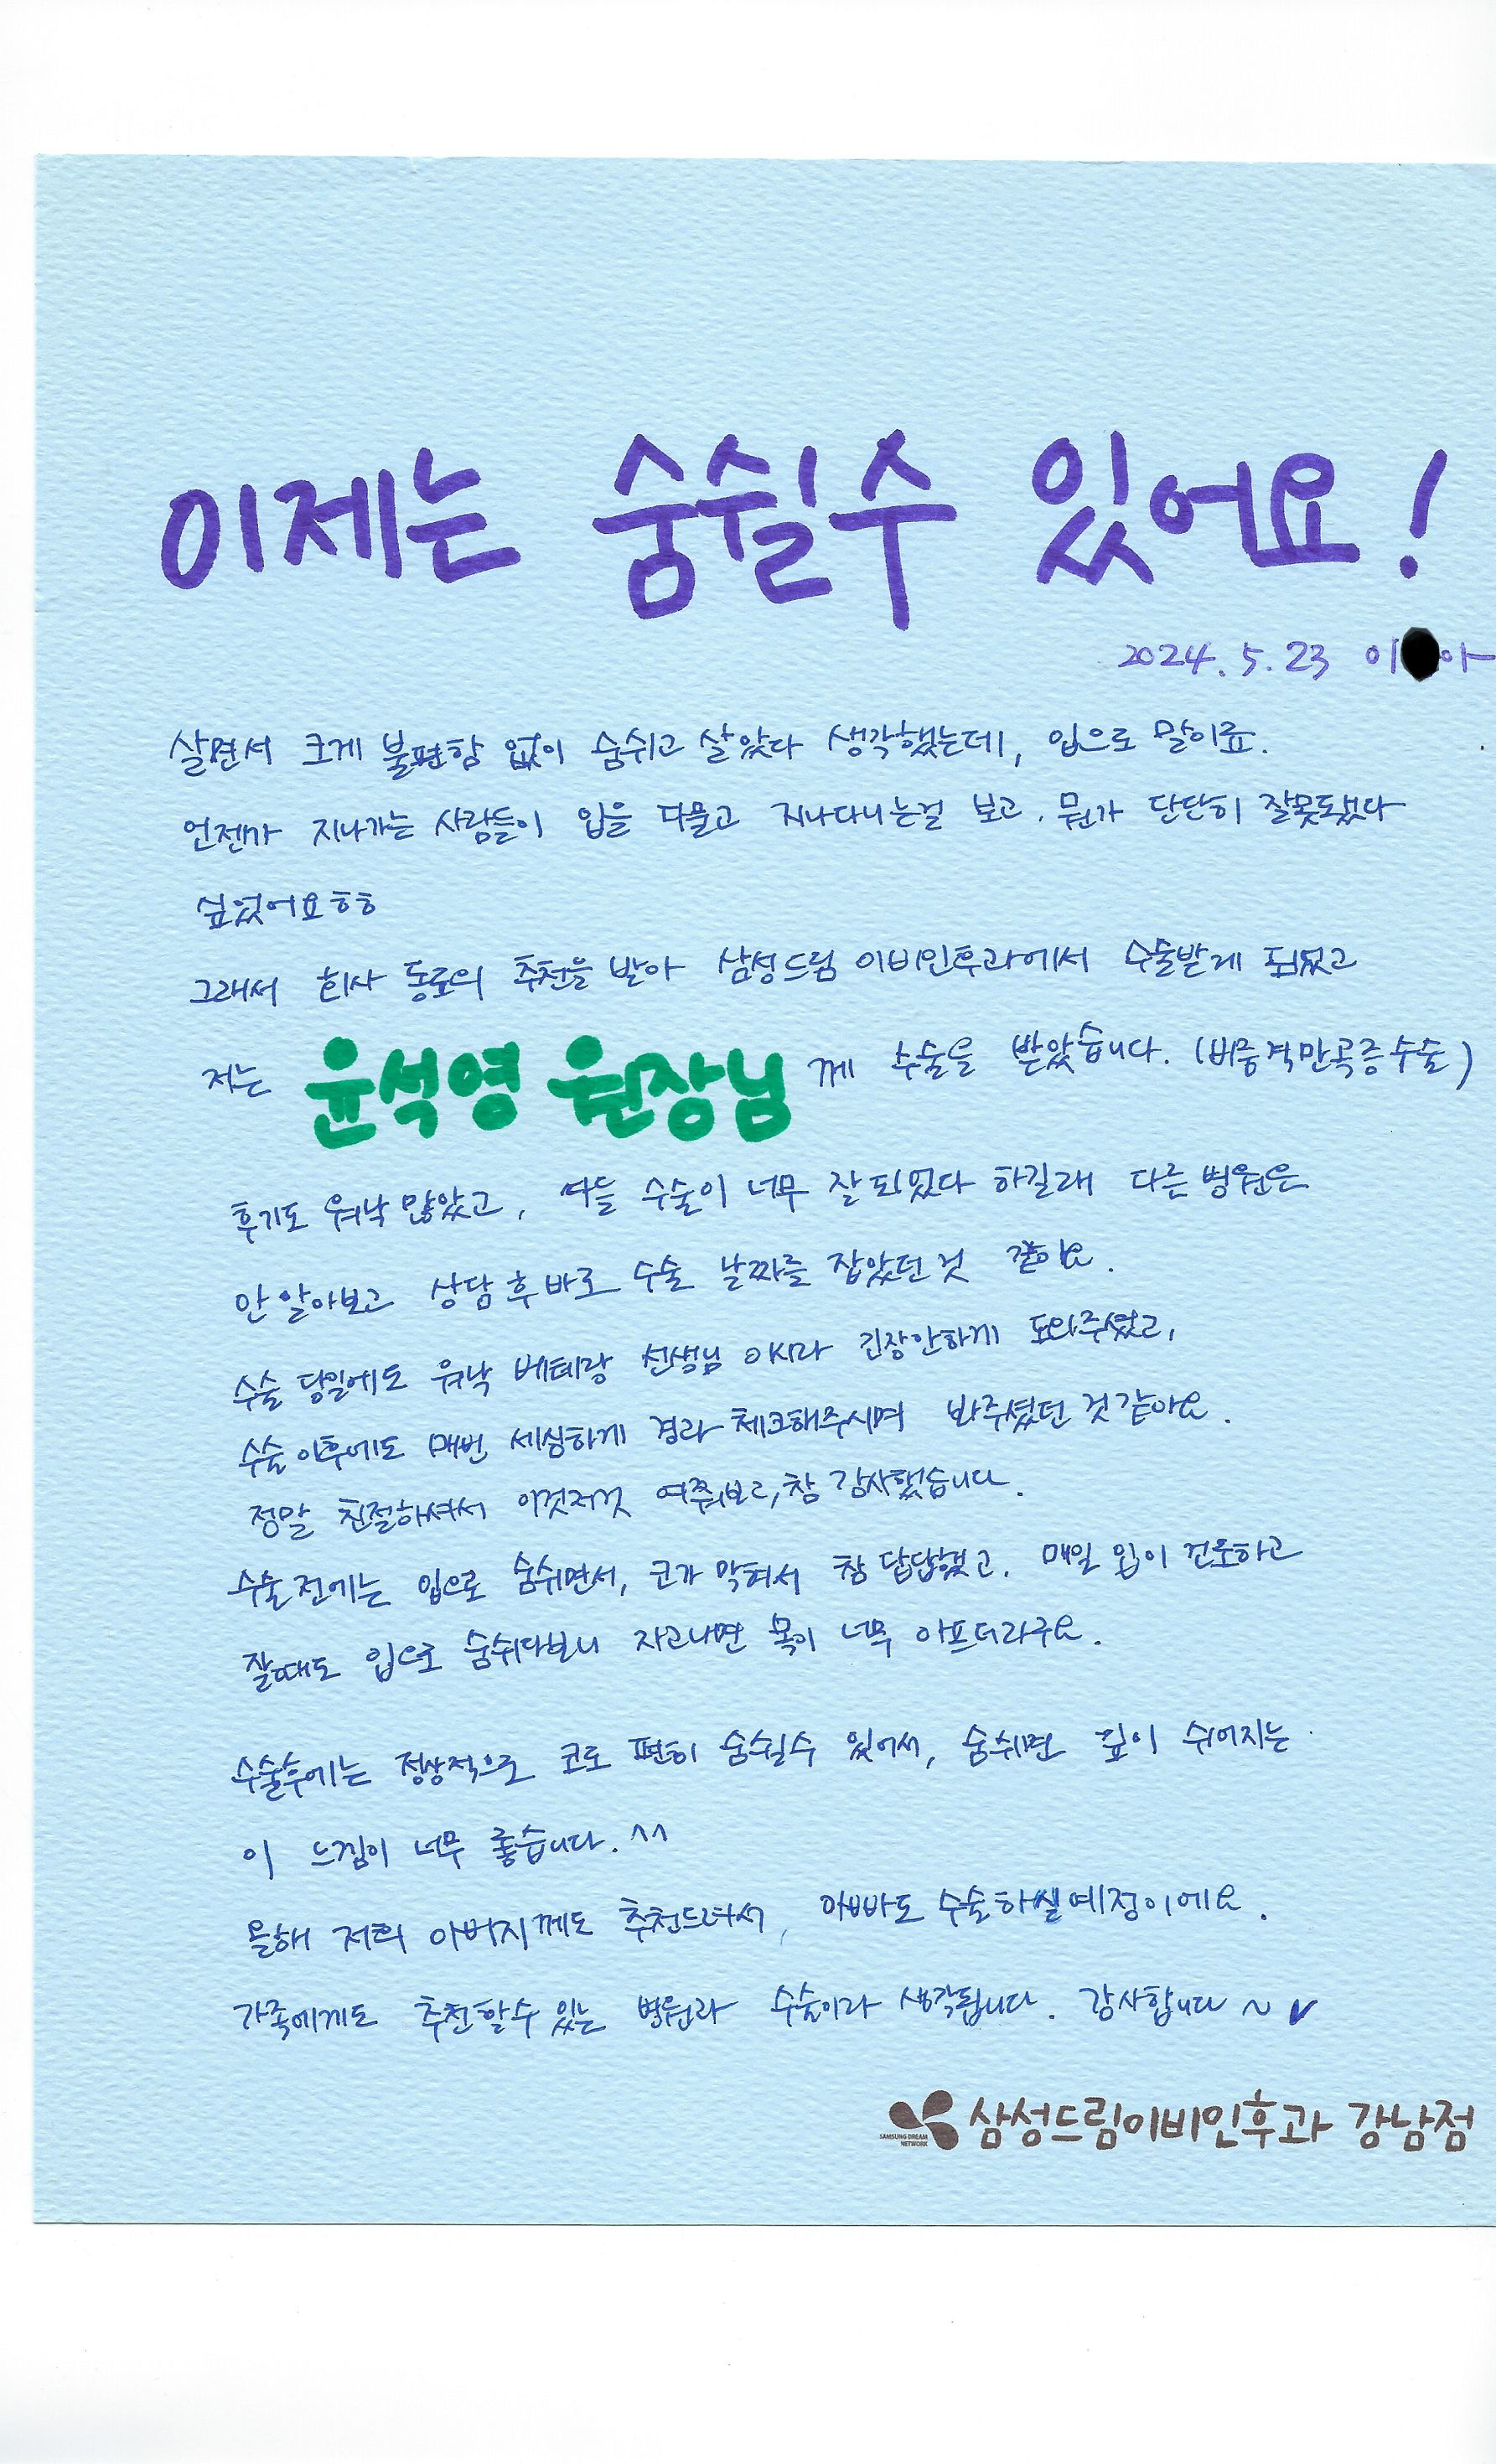 이제는 숨쉴수 있어요!
2024. 5. 23 이 아
살면서 크게 불편함 없이 숨쉬고 살았다 생각했는데, 입으로 말이죠.
언젠가 지나가는 사람들이 입을 다물고 지나다니는걸 보고. 뭔가 단단히 잘못됐다
싶었어요ㅎㅎ
그래서 회사 동료의 추천을 받아 삼성드림 이비인후과에서 수술받게 되었고
저는 윤석영 원장님께 수술을 받았습니다. (비중격만곡증수술)
후기도 워낙 많았고, 다들 수술이 너무 잘되었다 하길래 다른 병원은
안 알아보고 상담 후 바로 수술 날짜를 잡았던 것 같아요.
수술 당일에도 워낙 베테랑 선생님 이시라 긴장안하게 도와주셨고,
수술이후에도 매번 세심하게 경과 체크해주시며 봐주셨던 것같아요.
정말 친절하셔서 이것저것 여쭤보고, 참 감사했습니다.
수술전에는 입으로 숨쉬면서, 코가 막혀서 참 답답했고. 매일 입이 건조하고
잘때도 입으로 숨쉬다보니 자고나면 목이 너무 아프더라구요.
수술후에는 정상적으로 코로 편히 숨쉴수 있어서, 숨쉬면 깊이 쉬어지는
이 느낌이 너무 좋습니다. ^^
올해 저희 아버지께도 추천드려서, 아빠도 수술하실예정이에요.
가족에게도 추천할수 있는 병원과 수술이라 생각됩니다. 감사합니다 ~
SAMSUNG DREAM NETWORK 삼성드림이비인후과 강남점